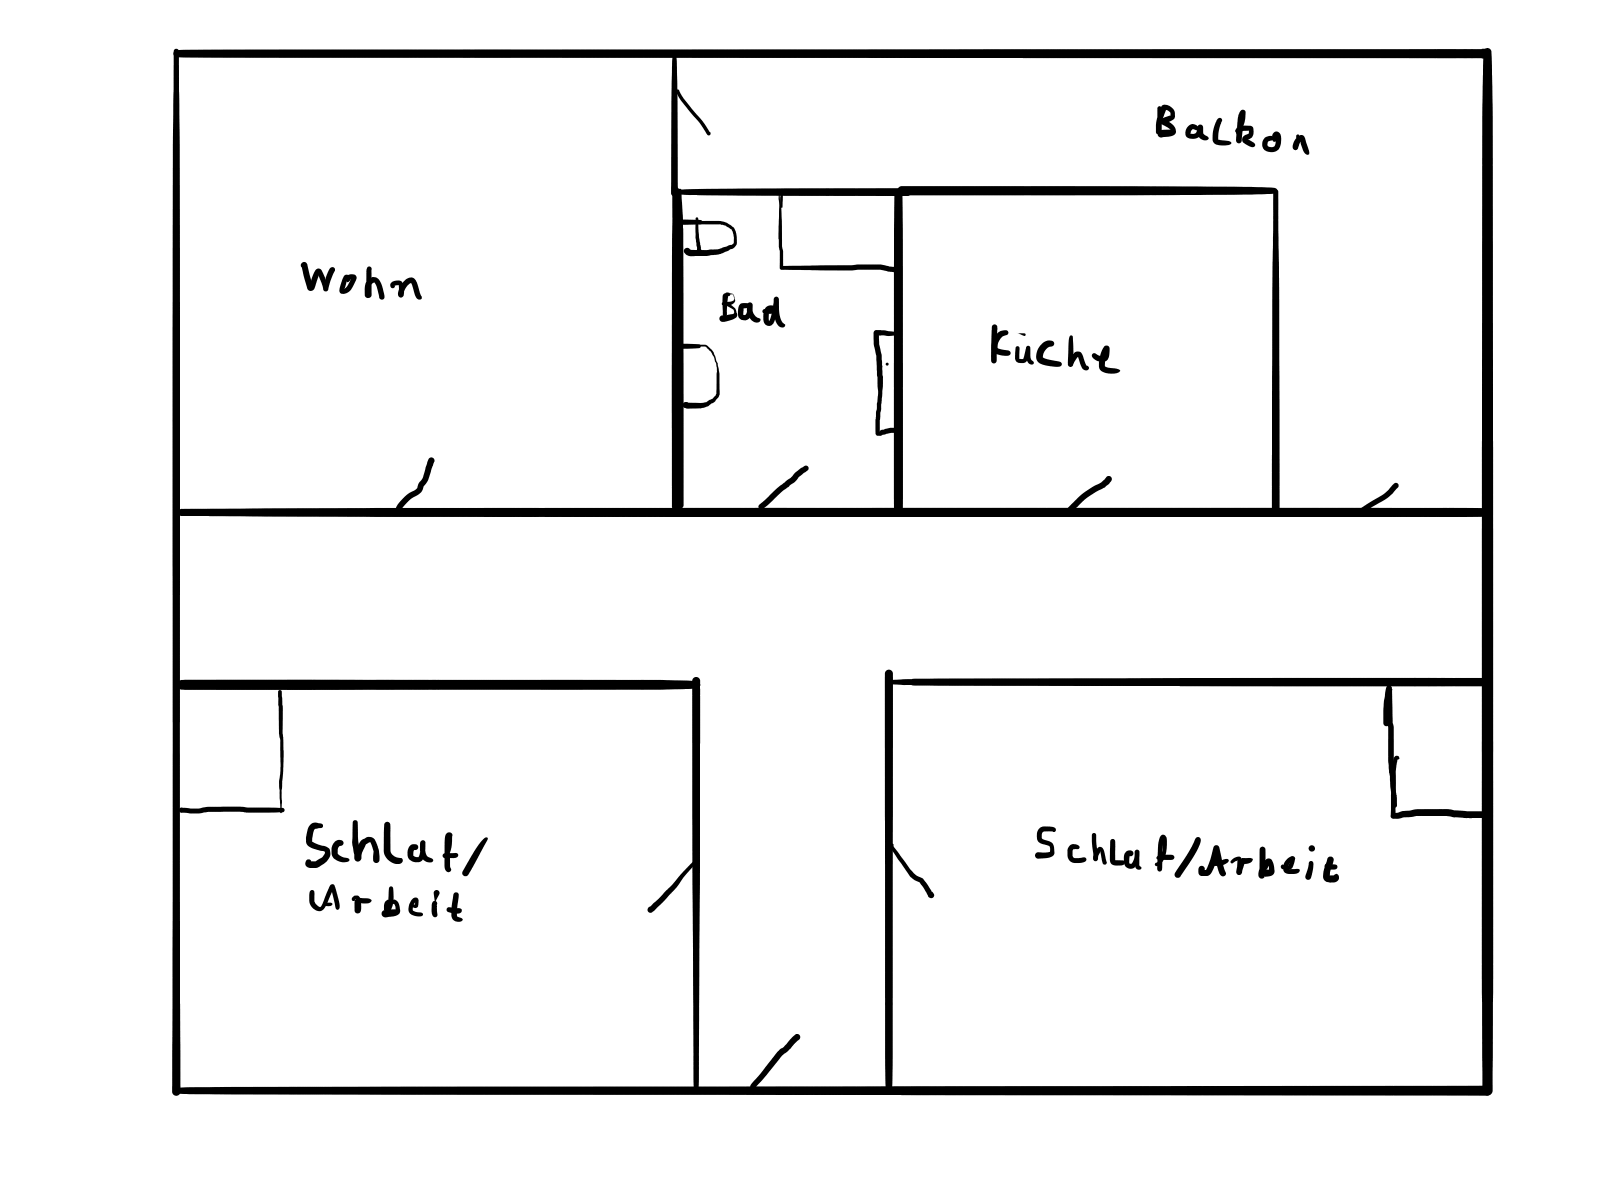 Balkon
Wohn
Bad
Küche
Schlaf/
Arbeit
Schlaf/Arbeit